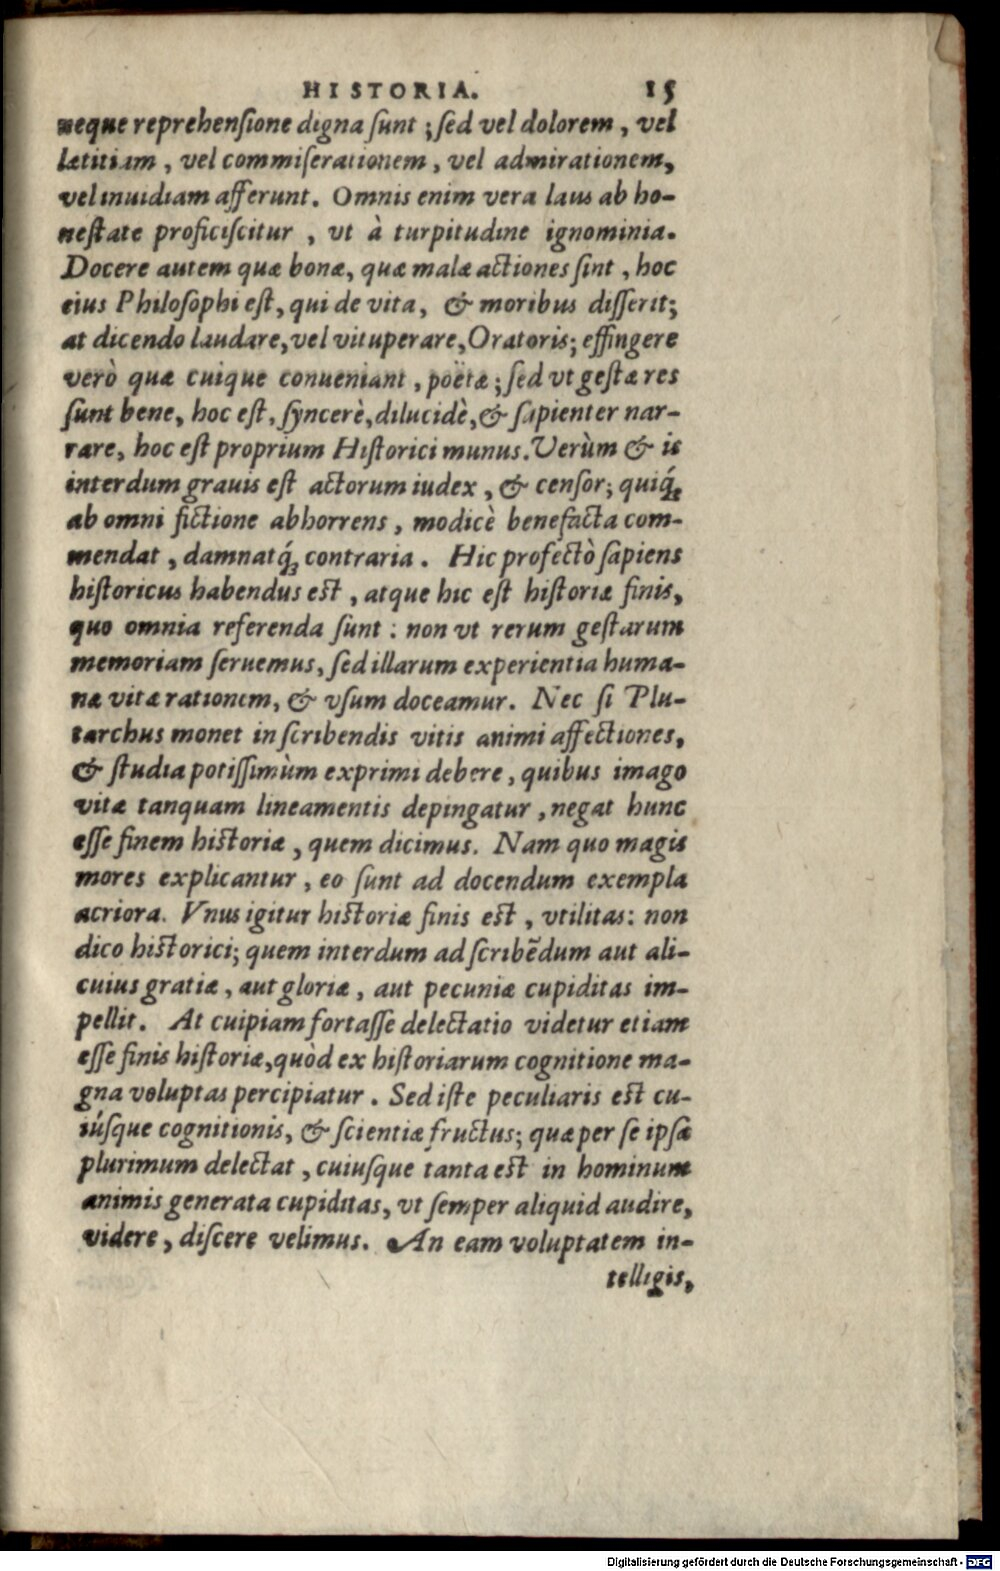 HISTORIA. 15
neque reprehensione digna sunt ; sed vel dolorem , vel
lætitiam , vel commiserationem , vel admirationem,
vel inuidiam afferunt. Omnis enim vera laus ab ho-
nestate proficiscitur , vt à turpitudine ignominia.
Docere autem quæ bonæ, quæ malæ actiones sint , hoc
eius Philosophi est, qui de vita, & moribus disserit;
at dicendo laudare, vel vituperare, Oratoris; effingere
verò quæ cuique conueniant , poëtæ ; sed vt gestæ res
sunt bene, hoc est, syncerè, dilucidè, & sapienter nar-
rare, hoc est proprium Historici munus. Verùm & is
interdum grauis est actorum iudex , & censor; quiq́;
ab omni fictione abhorrens , modicè benefacta com-
mendat , damnatq́; contraria . Hic profectò sapiens
historicus habendus est , atque hic est historiæ finis,
quo omnia referenda sunt : non vt rerum gestarum
memoriam seruemus, sed illarum experientia huma-
næ vitæ rationem, & vsum doceamur. Nec si Plu-
tarchus monet in scribendis vitis animi affectiones,
& studia potissimùm exprimi debere, quibus imago
vitæ tanquam lineamentis depingatur , negat hunc
esse finem historiæ , quem dicimus. Nam quo magis
mores explicantur , eo sunt ad docendum exempla
acriora. Vnus igitur historiæ finis est , vtilitas: non
dico historici; quem interdum ad scribẽdum aut ali-
cuius gratiæ , aut gloriæ , aut pecuniæ cupiditas im-
pellit. At cuipiam fortasse delectatio videtur etiam
esse finis historiæ, quòd ex historiarum cognitione ma-
gna voluptas percipiatur . Sed iste peculiaris est cu-
iúsque cognitionis, & scientiæ fructus; quæ per se ipsã
plurimum delectat , cuiusque tanta est in hominum
animis generata cupiditas, vt semper aliquid audire,
videre , discere velimus. An eam voluptatem in-
telligis,
Digitalisierung gefördert durch die Deutsche Forschungsgemeinschaft - DFG